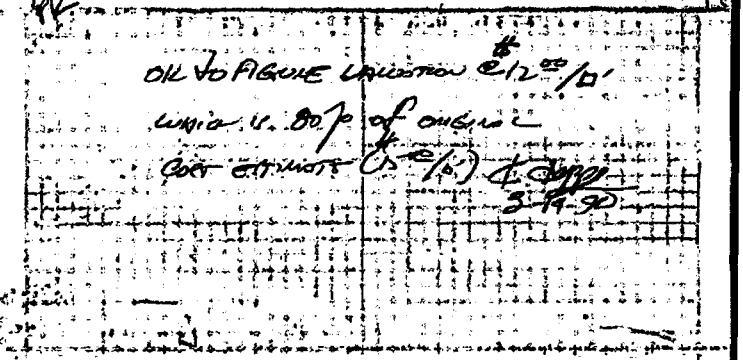 OK TO FIGURE VALUATION @ $12.00/□'
WHICH IS 80% of ORIGINAL
COST ESTIMATE ($15.00/□')
3-14-90